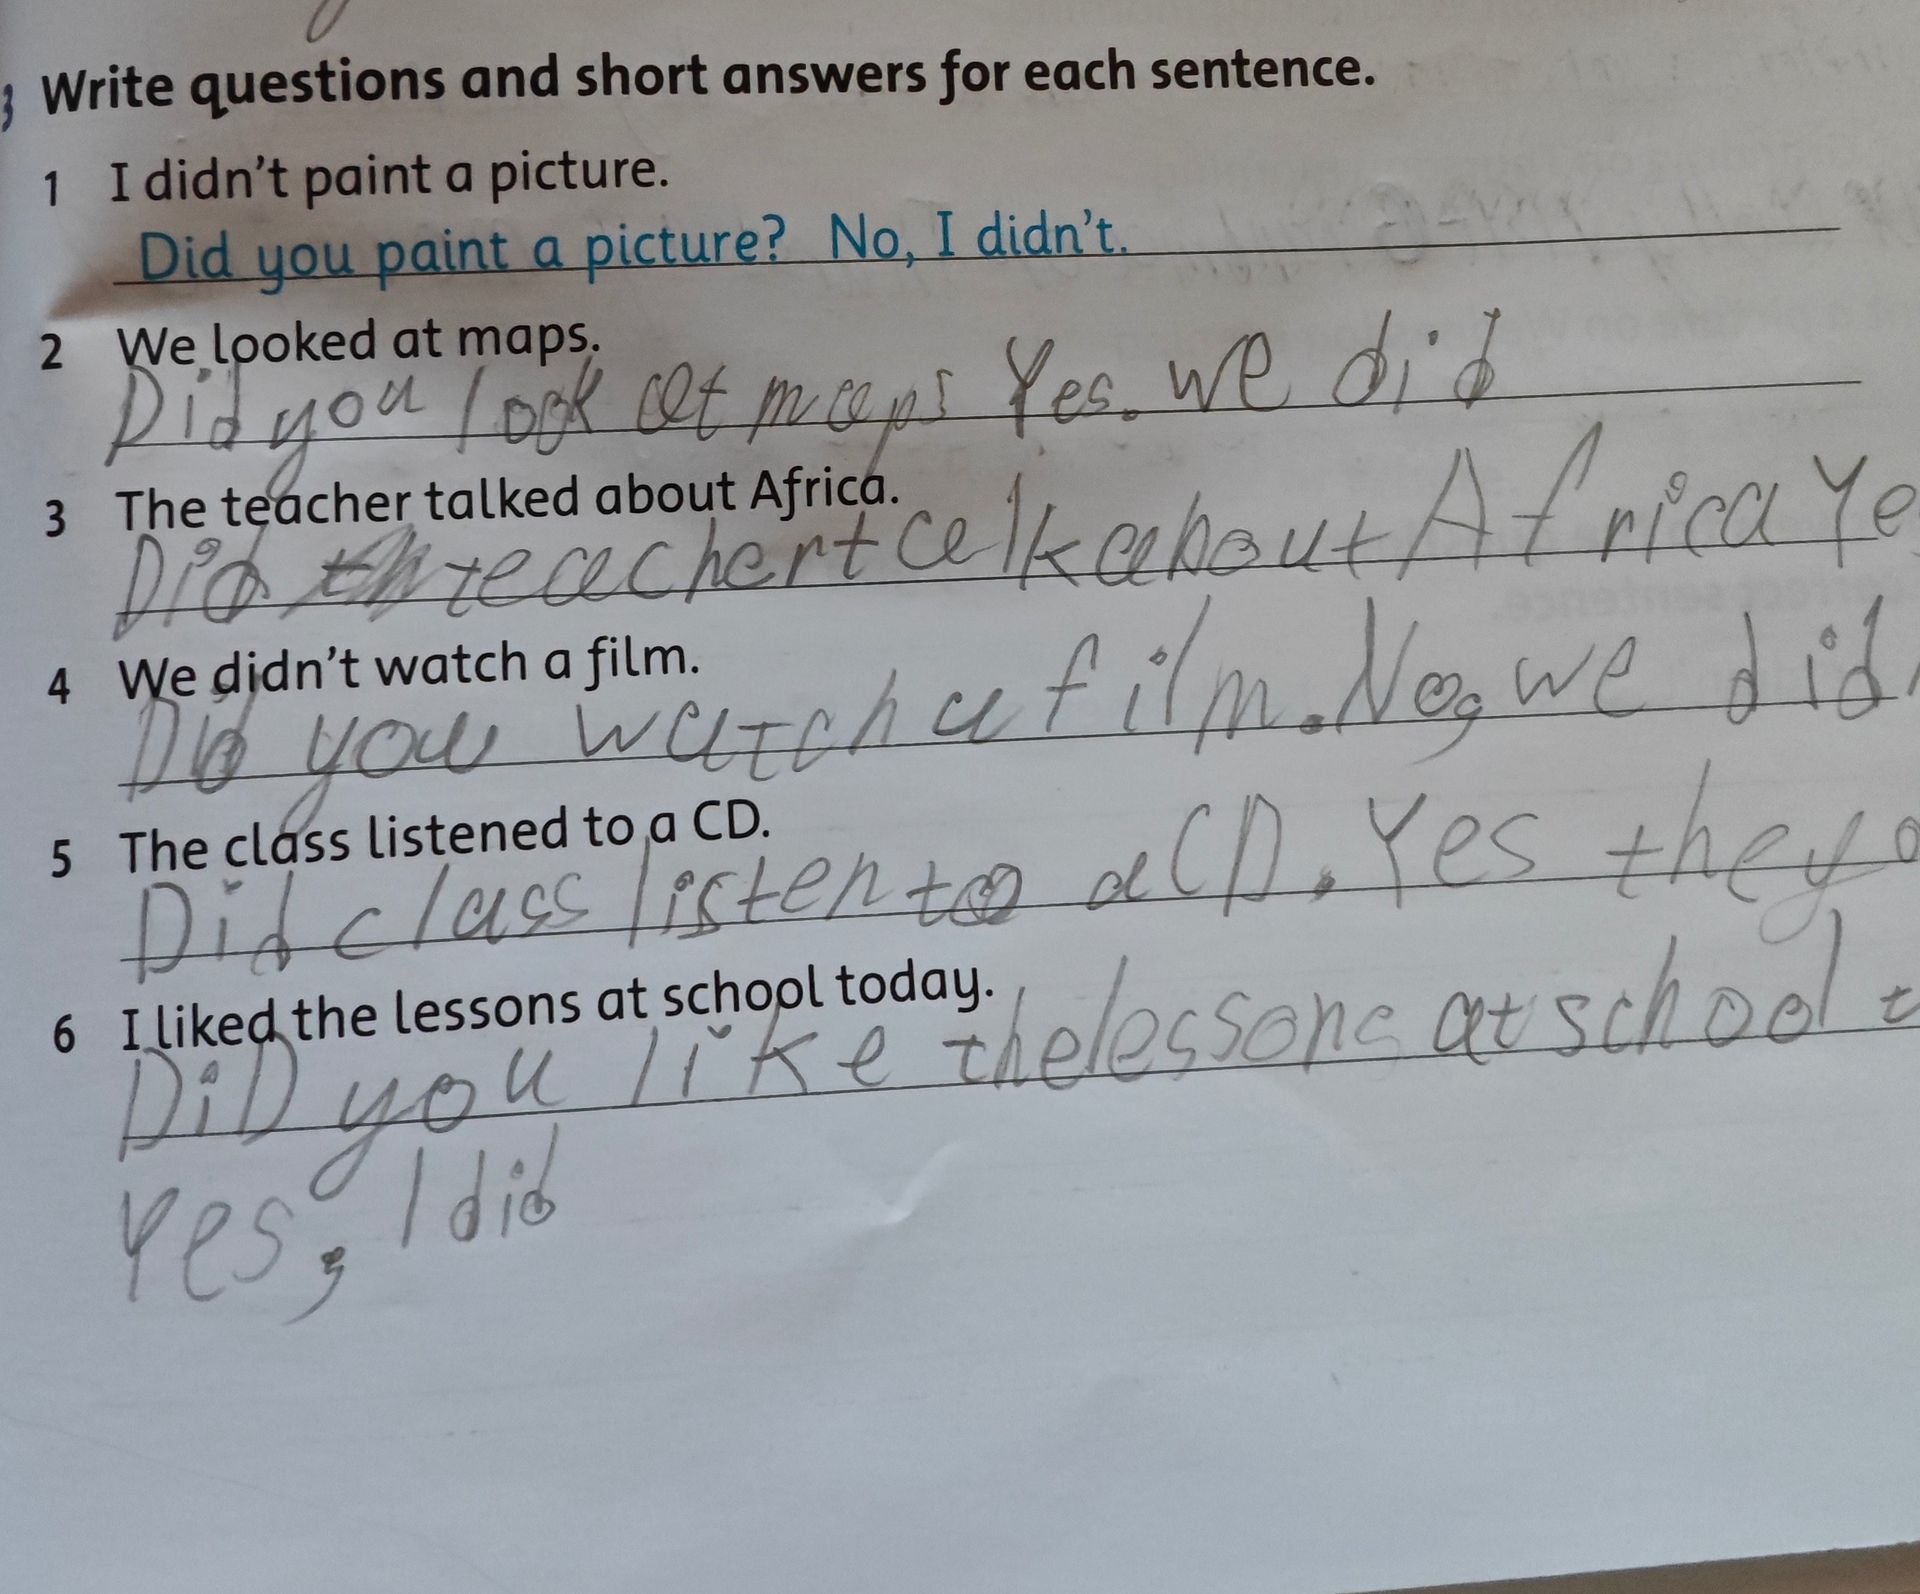 3 Write questions and short answers for each sentence.
1 I didn't paint a picture.
Did you paint a picture? No, I didn't.
2 We looked at maps.
Did you look at maps Yes. we did
3 The teacher talked about Africa.
Did teacher talk about Africa Ye
4 We didn't watch a film.
Did you watch a film. No, we did
5 The class listened to a CD.
Did class listen to a CD. Yes they
6 I liked the lessons at school today.
DiD you like the lessons at school t
Yes, I did